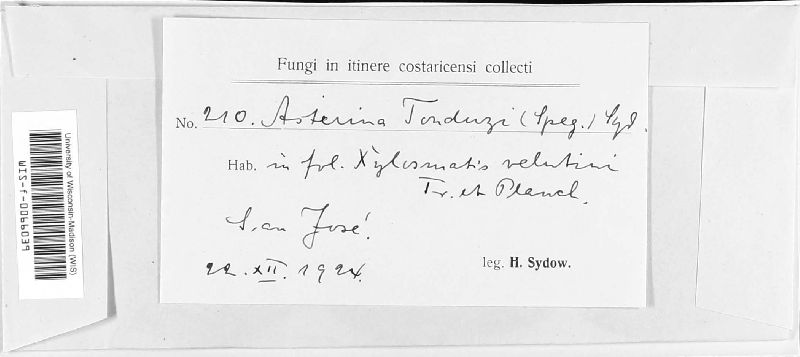 Fungi in itinere costaricensi collecti
No. 210. Asterina Tonduzi (Speg.) Syd.
Hab. in fol. Xylosmatis velutini
Tr. et Planch.
San José.
22. XII. 1924.
leg. H. Sydow.
University of Wisconsin-Madison (WIS)
WIS-f-0090039